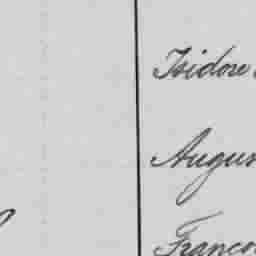 Isidore
Augus
Franço